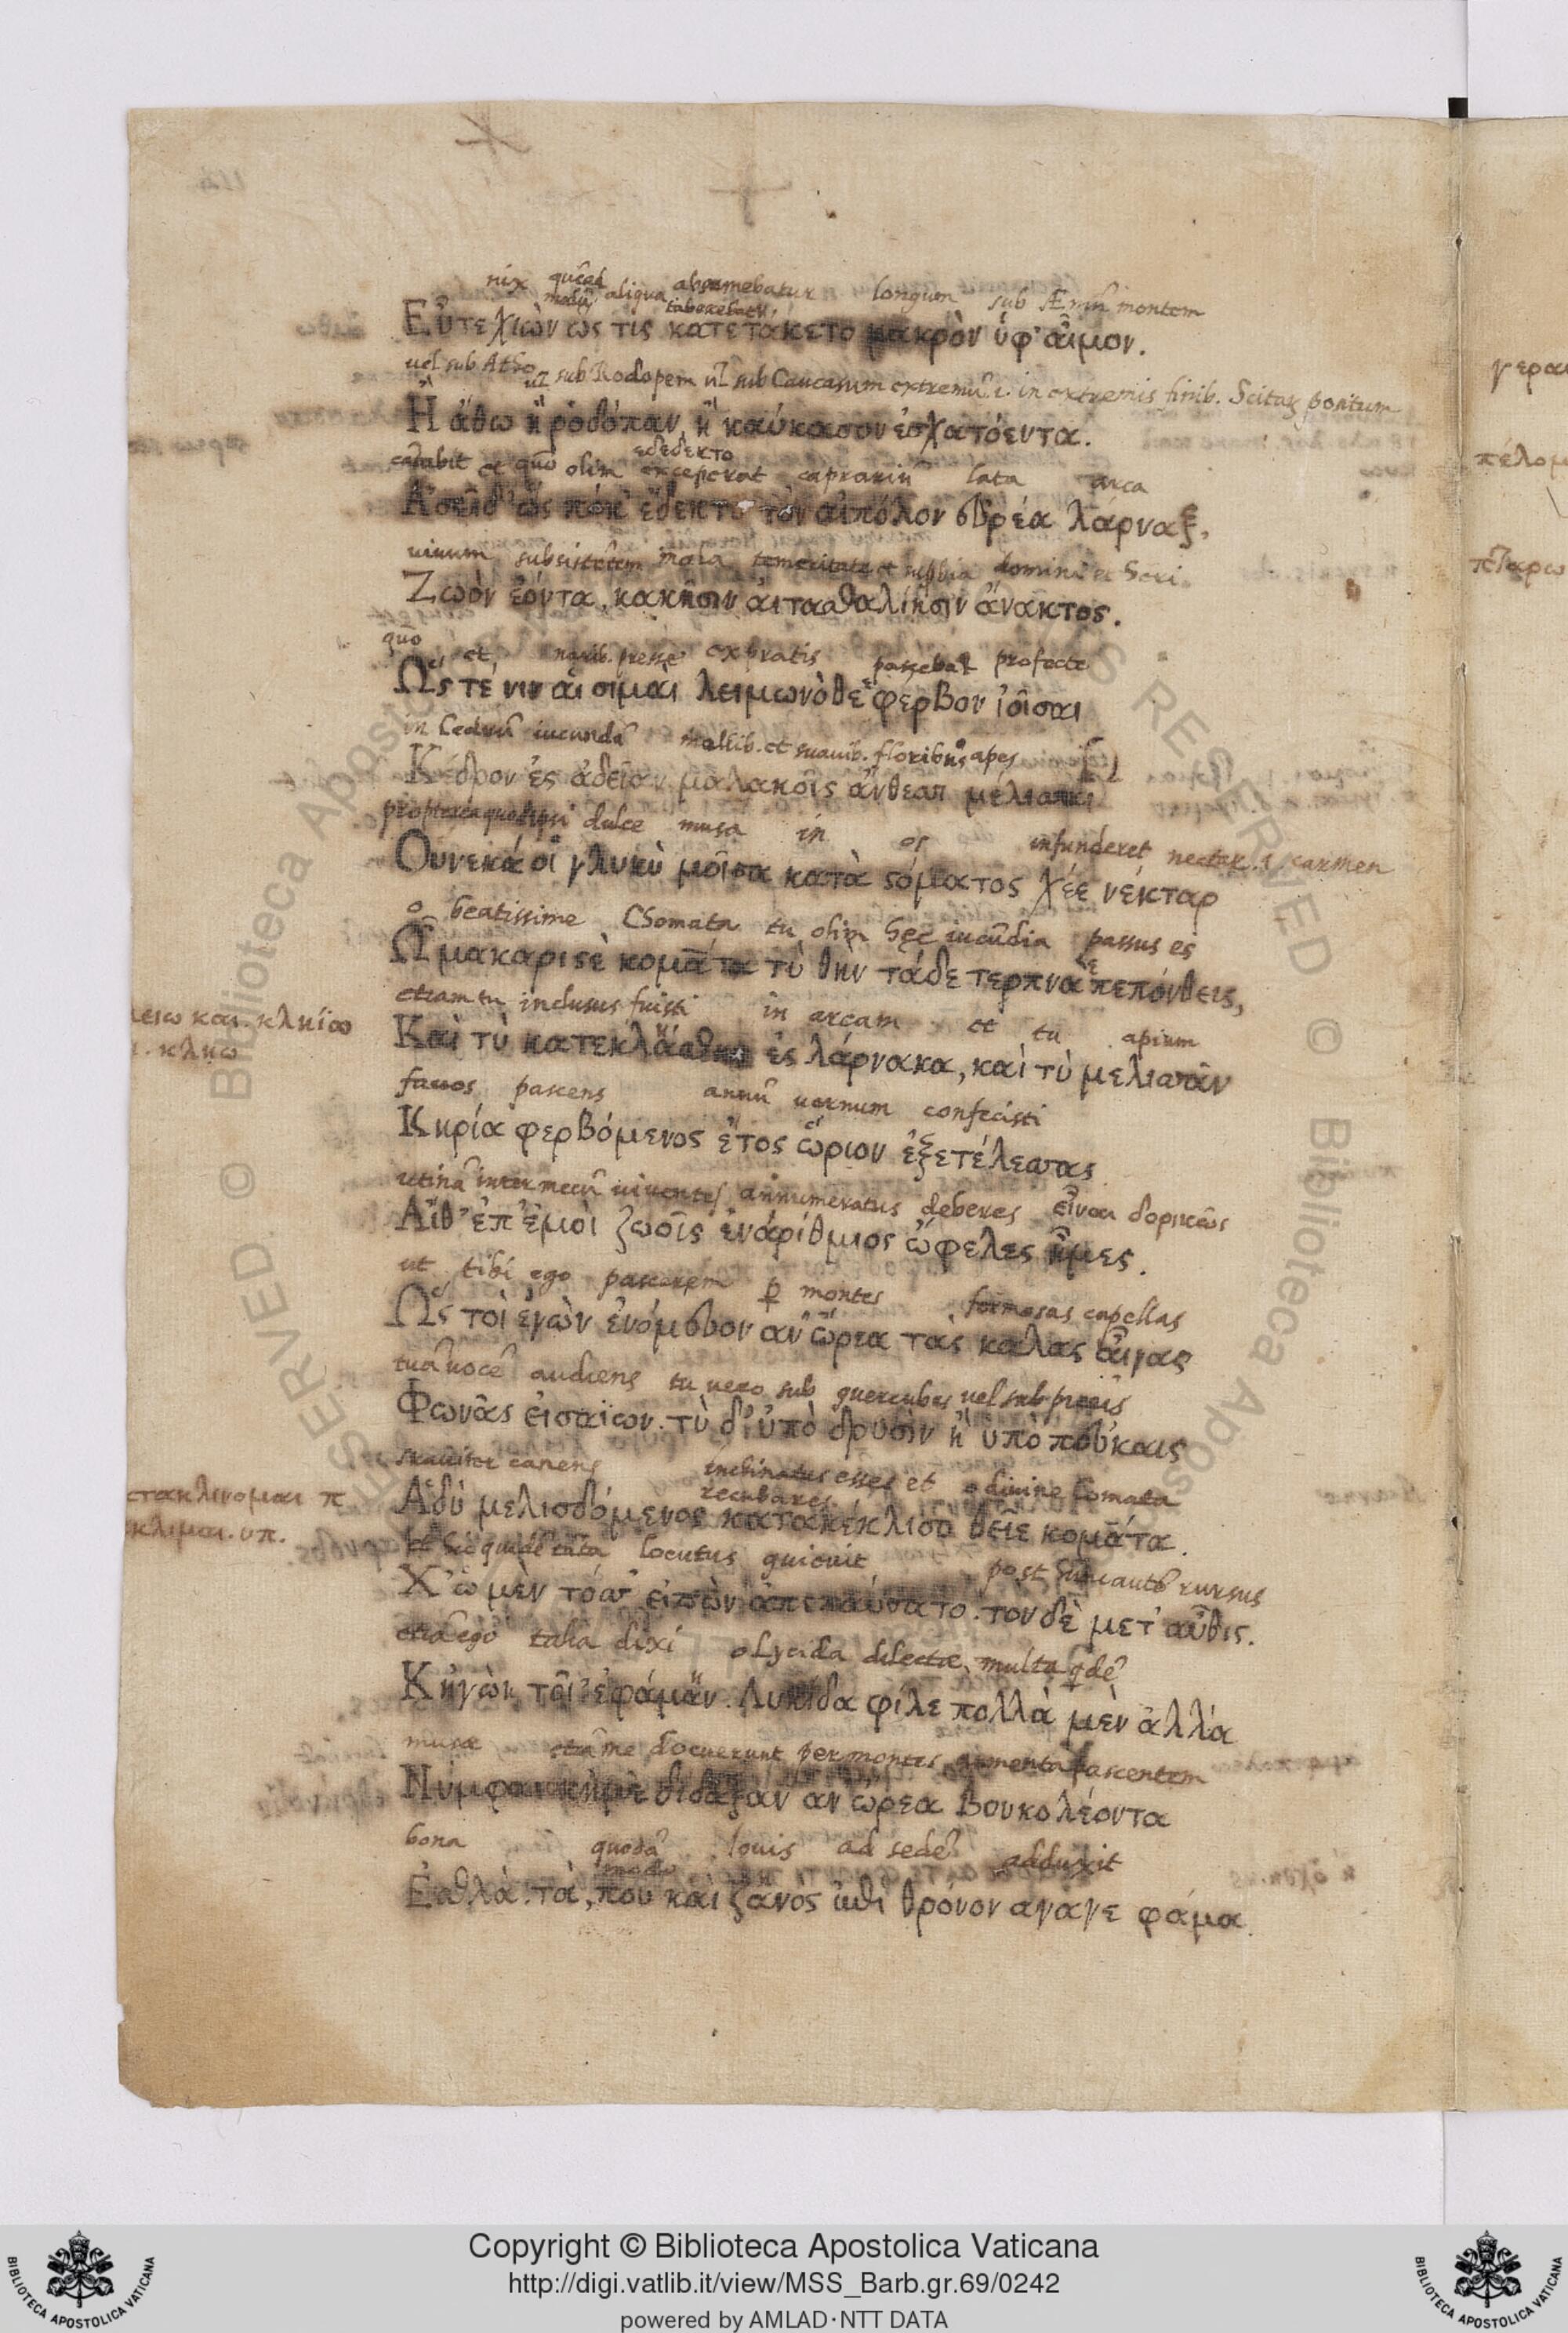 nix quead aliqua absumebatur longum sub Æmũ montem
modũ taboxebatur
Εὖτε χιὼν ὥς τις κατετάκετο μακρὸν ὑφ' αἷμον.
uel sub Atho uł sub Rodopem uł sub Caucasum extremũ .i. in extremis finib. Scitaꝝ pontum
Ἢ ἄθω ἢ ῥοδόπαν, ἢ καύκασον ἐσχατόεντα.
ἐδέδεκτο
et quo olim exceperat caprariũ lata arca
Ἀσεῖ δ' ὥς ποκ' ἔδεκτο τὸν αἰπόλον εὐρέα λάρναξ.
uiuum mala temeritate et domini et heri.
Ζωὸν ἐόντα, κακῆσιν ἀιτασθαλίησιν ἄνακτος.
quo et ex pratis profecte
Ὥς τέ νιν αἱ σιμαὶ λειμωνόθε φέρβον ἰοῖσαι
in Cedrũ iucundã mollib. et suauib. floribus apes
Κέδρον ἐς ἁδεῖαν μαλακοῖς ἄνθεσσι μέλισσαι
dulce musa in os infunderet nectar .i. carmen
Οὕνεκά οἱ γλυκὺ μοῖσα κατὰ στόματος χέε νέκταρ
o beatissime Chomata tu olim hęc iucũdia passus es
Ὦ μακαριστὲ κομᾶτα τὺ θὴν τάδε τερπνὰ πεπόνθεις,
etiam tu inclusus fuisti in arcam et tu apium
λειω και κληΐω
Καὶ τὺ κατεκλάσθης ἐς λάρνακα, καὶ τὺ μελισσᾶν
κληω
fauos pascens annũ uernum confecisti
Κηρία φερβόμενος ἔτος ὥριον ἐξετέλεσσας
utinã inter meũ uiuentes annumeratus deberes εἶναι δορικῶς
Αἴθ' ἐπ' ἐμοὶ ζωοῖς ἐνάριθμιος ὤφελες ἦμες.
ut tibi ego pascerem ꝑ montes formosas capellas
Ὥς τοὶ ἐγὼν ἐνόμευον ἀν' ὤρεα τὰς καλὰς αἶγας
tuã uocẽ audiens tu uero sub quercubus uel sub piceis
Φωνᾶς εἰσαΐων. τὺ δ' ὑπὸ δρυσὶν ἢ ὑπὸ πεύκαις
suauiter canens inclinatus esses et o diuine Comata
recubares
Ἁδὺ μελισδόμενος κατακέκλισο θεῖε κομᾶτα.
κλιμαι. υπ.
locutus quieuit post rursus
Χ' ὡ μὲν τόσσ' εἰπὼν ἀπεπαύσατο. τὸν δὲ μετ' αὖθις.
ego talia dixi o Lycida dilecte, multa qdẽ
Κἠγὼν τοῖ' ἐφάμαν. Λυκίδα φίλε πολλὰ μὲν ἀλλά
musæ etiã me docuerunt per montes armenta pascentem
Νύμφαι κἠμὲ δίδαξαν ἀν' ὤρεα βουκολέοντα
bona quodã Iouis ad sedẽ adduxit
modo
Ἐσθλὰ. τὰ, που καὶ ζανὸς ἐπὶ θρόνον ἄγαγε φάμα.
Copyright © Biblioteca Apostolica Vaticana
http://digi.vatlib.it/view/MSS_Barb.gr.69/0242
powered by AMLAD·NTT DATA